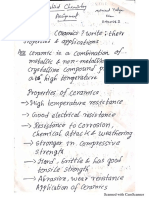 Applied Chemistry
Assignment
Ceramics? Write their
& applications
Ans Ceramic is a combination of
metallic & non-metallic
crystalline compound
high temperature
Properties of Ceramics
→ High temperature resistance
→ Good electrical resistance
→ Resistance to Corrosion,
chemical attack & weathering
→ Stronger in compressive
strength
→ Hard, brittle & has good
tensile strength
→ Abrasive, wear resistance
Application of Ceramics
Scanned with CamScanner